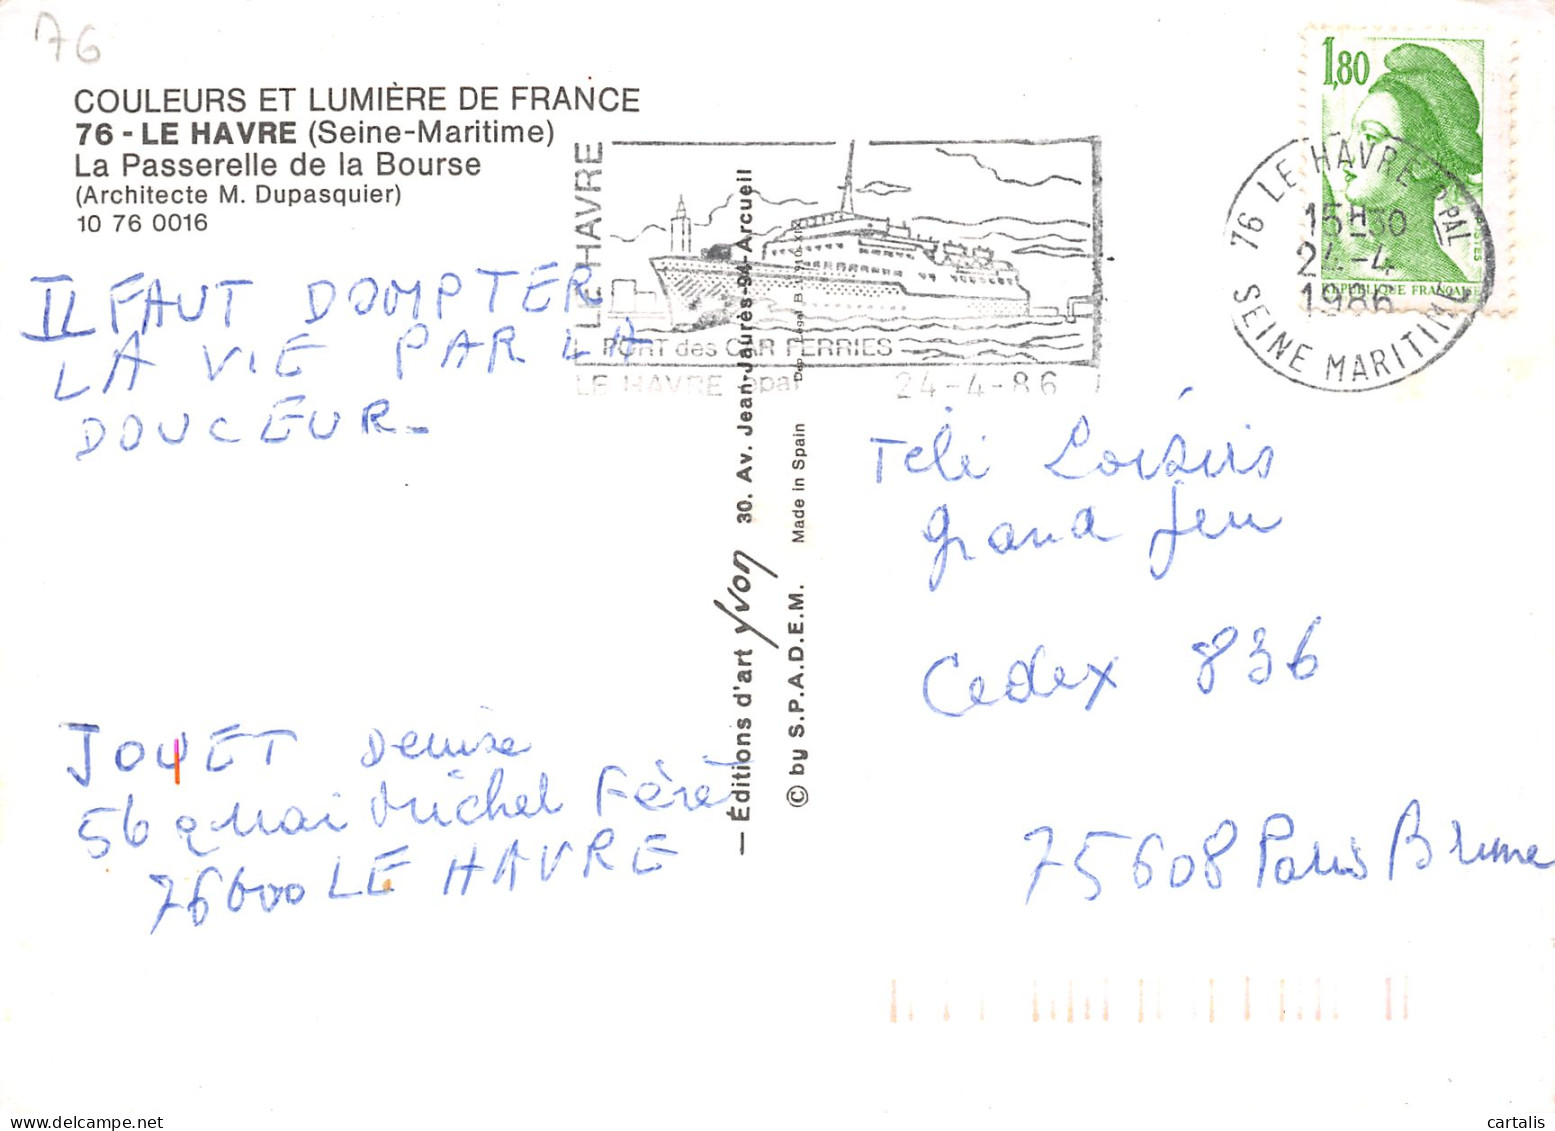 76
COULEURS ET LUMIÈRE DE FRANCE
76 - LE HAVRE (Seine-Maritime)
La Passerelle de la Bourse
(Architecte M. Dupasquier)
10 76 0016
IL FAUT DOMPTER
LA VIE PAR LA
DOUCEUR_
JOUET Denise
56 quai Michel Féré
76600 LE HAVRE
LE HAVRE
PORT des CAR FERRIES
LE HAVRE ppal 24-4-86
— Éditions d'art Yvon 30. Av. Jean-Jaurès-94-Arcueil
© by S.P.A.D.E.M. Made in Spain
1,80
REPUBLIQUE FRANÇAISE
76 LE HAVRE PPAL
15H30
24-4
1986
SEINE MARITIME
Télé Loisirs
grand jeu
Cedex 836
75608 Paris Brune
cartalis
www.delcampe.net